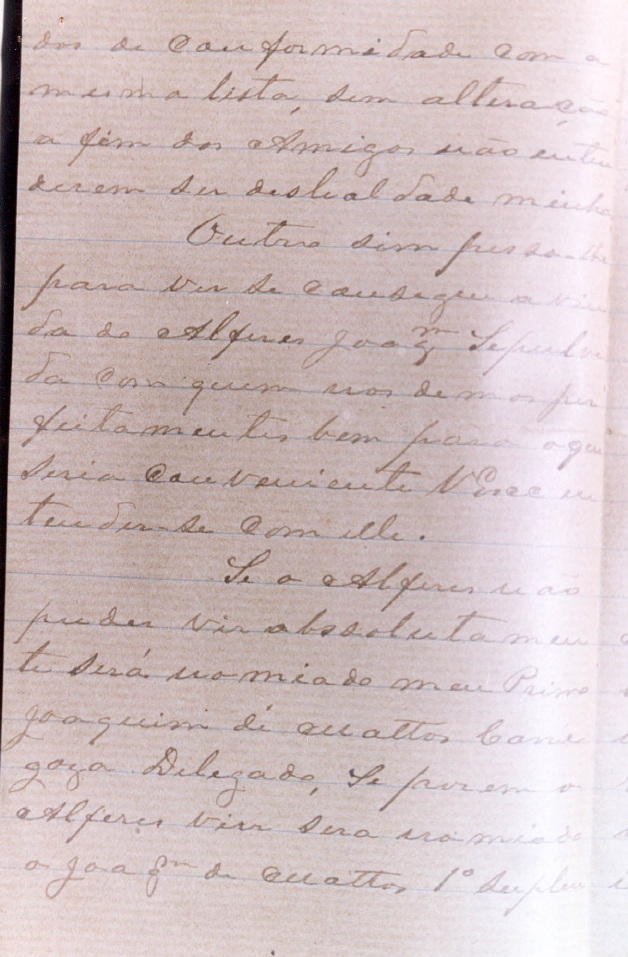 dos de conformidade com a
mesma lista, sem alteração
a fim dos Amigos não enten
derem ser deslealdade minha
Outro sim pesso-lhe
para ver se consegue a vin
da do Alferes Joaqm Sepulve
da com quem nos demos per
feitamentes bem para o que
seria conveniente VExcc en
tender-se com elle.
Se o Alferes não
puder vir absolutamen
te será nomiado meu Primo
Joaquim de Mattos
Delegado, Se porem o
Alferes vier sera nomiado
o Joaqm de Mattos 1º Suplen